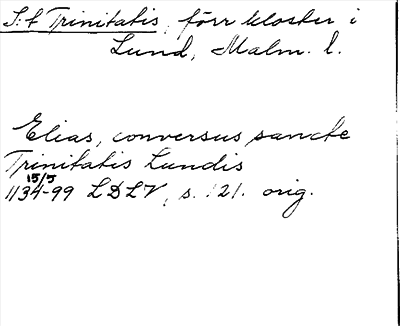 S:t Trinitatis, förr kloster i
Lund, Malm. l.
Elias, conversus sancte
Trinitatis Lundis
15/5
1134-99 LDLV, s. 121. orig.